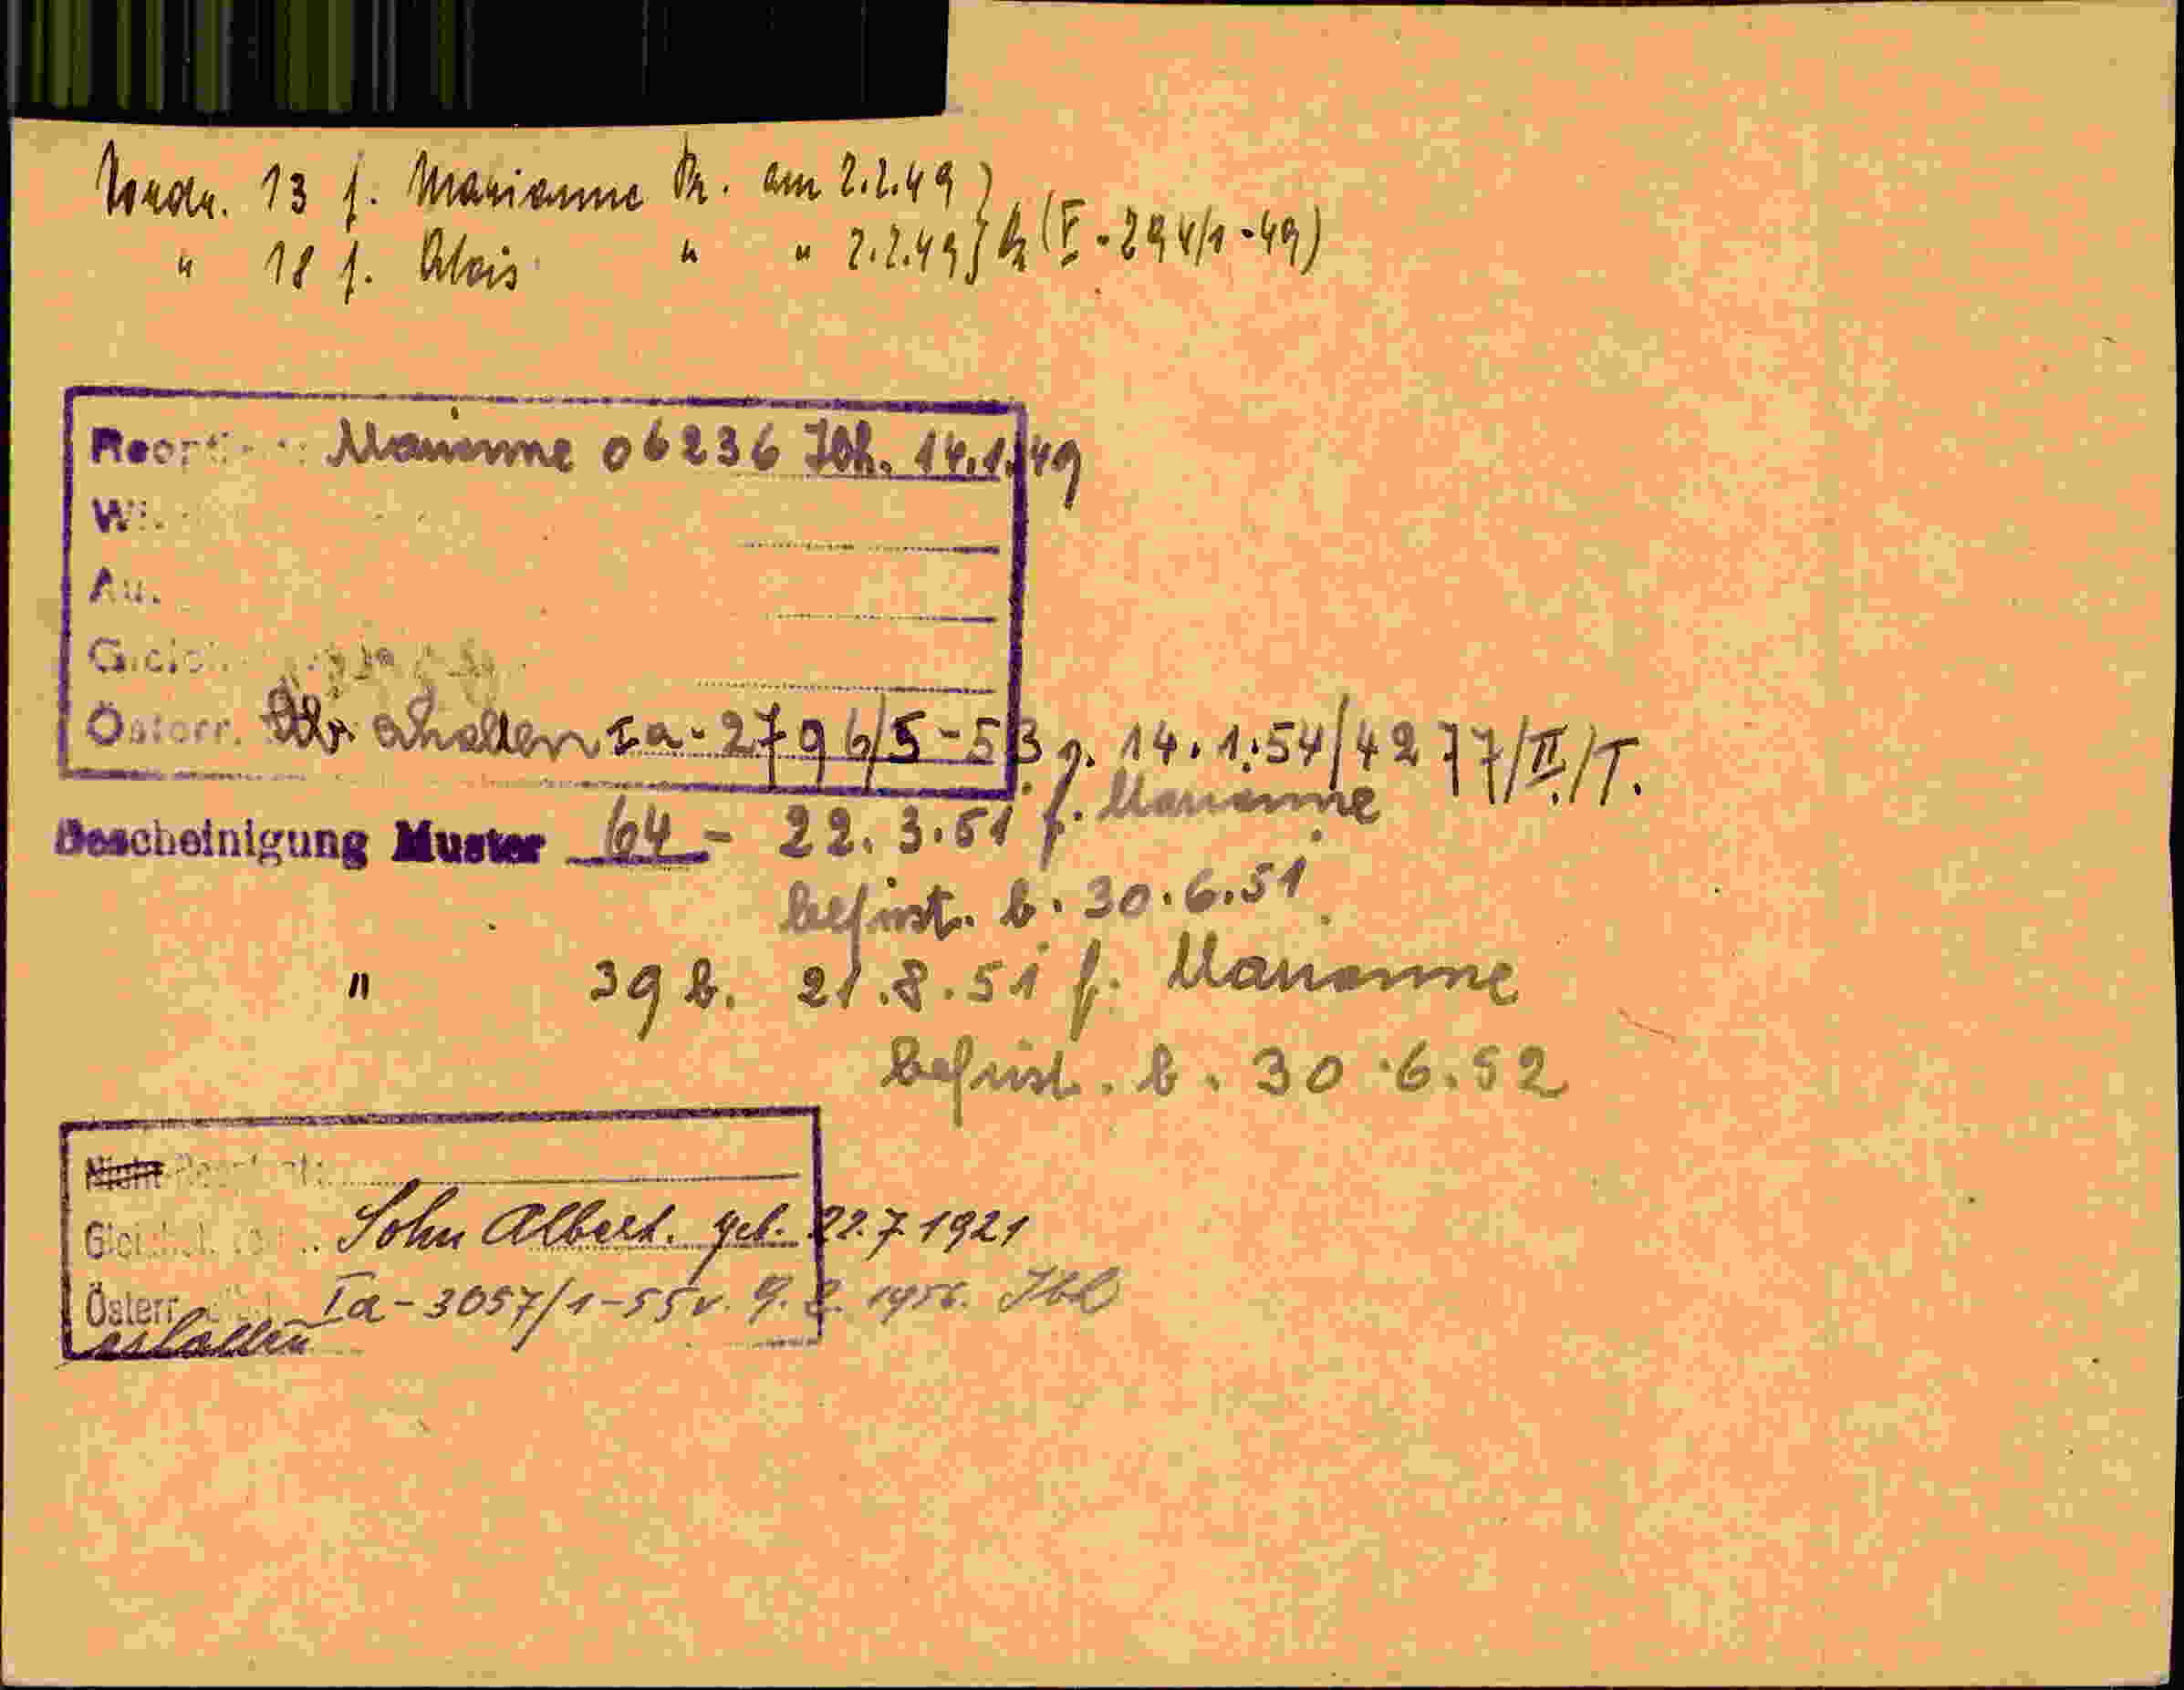 Vordr. 13 f. Marianne Pr. am 2.2.49
" 18 f. Alois " " 2.2.49 } (V-294/1-49)
Marianne 06236 Ibk. 14.1.49
Österr. erhalten Ia-2796/5-53 v. 14.1.54/4277/II/T.
Bescheinigung Muster 64 - 22.3.51 f. Marianne
befrist. b. 30.6.51
" 39 b. 21.8.51 f. Marianne
befrist. b. 30.6.52
Nicht
Sohn Albert. geb. 22.7.1921
Österr. Ia-3057/1-55 v. 9.2.1956. Ibk
erhalten